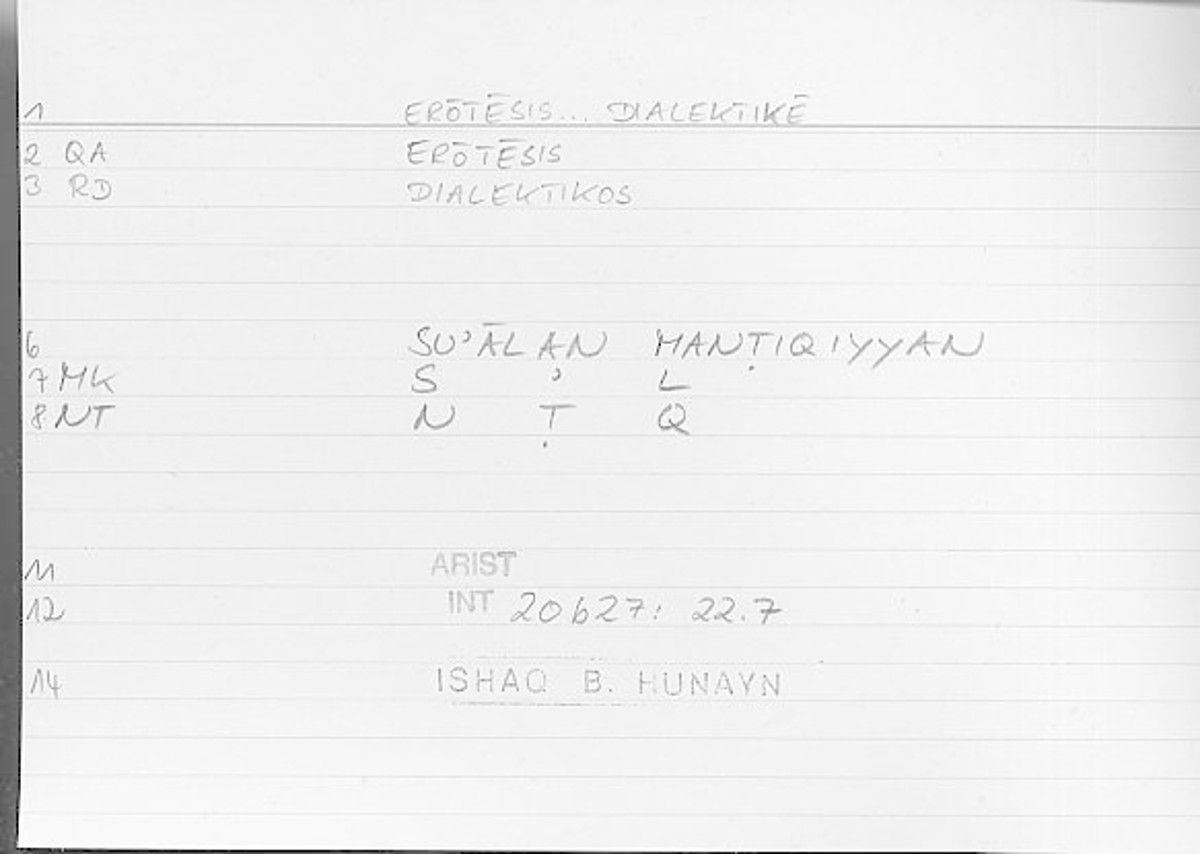 1 ERŌTĒSIS... DIALEKTIKĒ
2 QA ERŌTĒSIS
3 RD DIALEKTIKOS
6 SU’ĀLAN MANṬIQIYYAN
7 MK S ’ L
8 NT N Ṭ Q
11 ARIST
12 INT 20b27: 22.7
14 ISHAQ B. HUNAYN